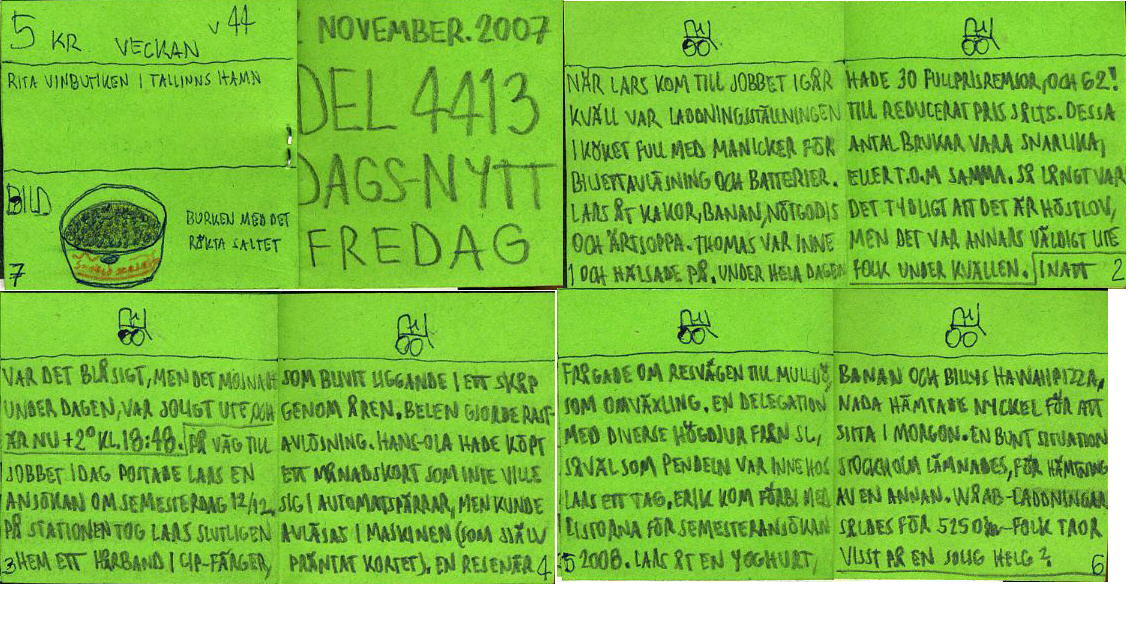 5 KR VECKAN V 44
RITA VINBUTIKEN I TALLINNS HAMN
BILD
BURKEN MED DET
RÖKTA SALTET
7
NOVEMBER.2007
DEL 4413
DAGS-NYTT
FREDAG
NÄR LARS KOM TILL JOBBET IGÅR
KVÄLL VAR LADDNINGSSTÄLLNINGEN
I KÖKET FULL MED MANICKER FÖR
BILJETTAVLÄSNING OCH BATTERIER.
LARS ÅT KAKOR, BANAN, NÖTGODIS
OCH ÄRTSOPPA. THOMAS VAR INNE
1 OCH HÄLSADE PÅ. UNDER HELA DAGEN
HADE 30 FULLPRISREMSOR, OCH 62!
TILL REDUCERAT PRIS SÅLTS. DESSA
ANTAL BRUKAR VARA SNARLIKA,
ELLER T.O.M SAMMA. SÅ LÅNGT VAR
DET TYDLIGT ATT DET ÄR HÖSTLOV,
MEN DET VAR ANNARS VÄLDIGT UTE
FOLK UNDER KVÄLLEN. INATT 2
VAR DET BLÅSIGT, MEN DET MOJNADE
UNDER DAGEN, VAR SOLIGT UTE, OCH
ÄR NU +2° KL.18:48. PÅ VÄG TILL
JOBBET IDAG POSTADE LARS EN
ANSÖKAN OM SEMESTERDAG 12/12,
PÅ STATIONEN TOG LARS SLUTLIGEN
3 HEM ETT HÅRBAND I GIP-FÄRGER,
SOM BLIVIT LIGGANDE I ETT SKÅP
GENOM ÅREN. BELEN GJORDE RAST-
AVLÖSNING. HANS-OLA HADE KÖPT
ETT MÅNADSKORT SOM INTE VILLE
SIG I AUTOMATSPÄRRAR, MEN KUNDE
AVLÄSAS I MASKINEN (SOM SJÄLV
PRÄNTAT KORTET). EN RESENÄR 4
FRÅGADE OM RESVÄGEN TILL
SOM OMVÄXLING. EN DELEGATION
MED DIVERSE HÖGDJUR FRÅN SL,
SÅVÄL SOM PENDELN VAR INNE HOS
LARS ETT TAG. ERIK KOM FÖRBI MED
LISTORNA FÖR SEMESTERANSÖKAN
5 2008. LARS ÅT EN YOGHURT,
BANAN OCH BILLYS HAWAIIPIZZA,
NADA HÄMTADE NYCKEL FÖR ATT
SITTA I MORGON. EN BUNT SITUATION
STOCKHOLM LÄMNADES, FÖR HÄMTNING
AV EN ANNAN. WÅAB-LADDNINGAR
SÅLDES FÖR 5250:- FOLK TROR
VISST PÅ EN SOLIG HELG? 6